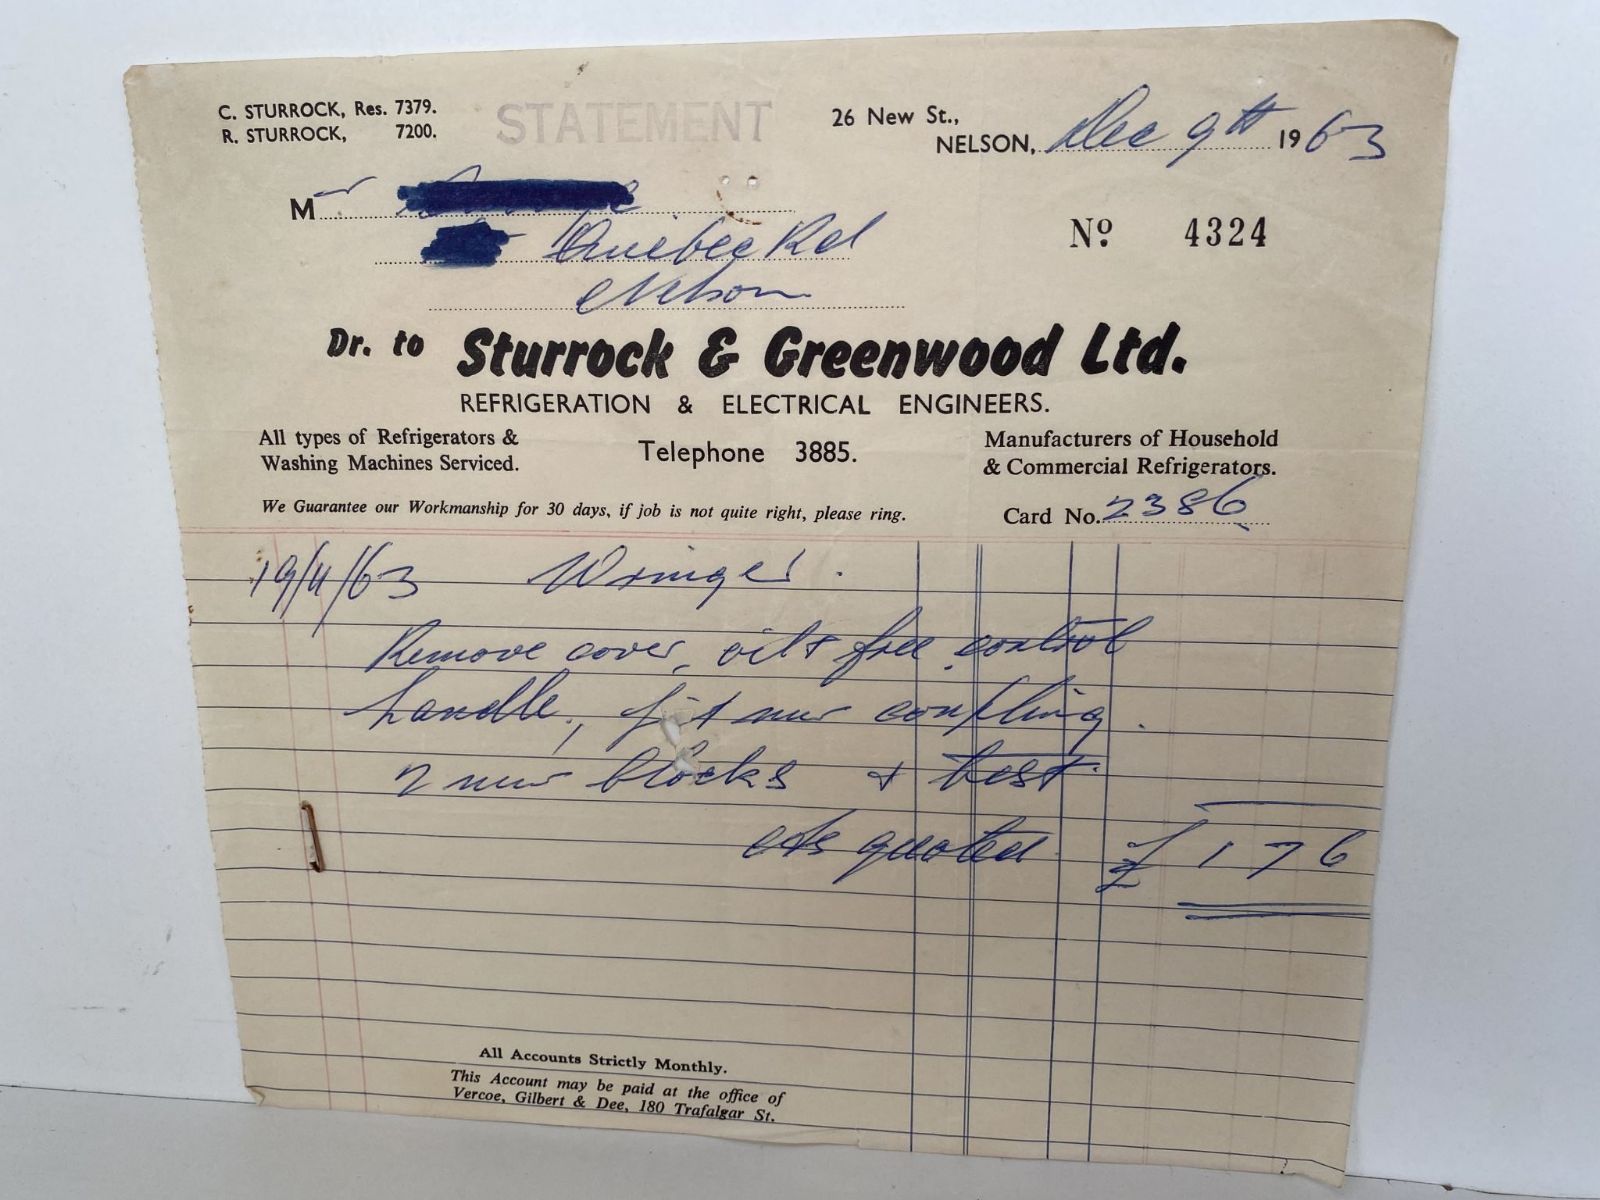 C. STURROCK, Res. 7379.
R. STURROCK, 7200.
STATEMENT
26 New St.,
NELSON, Dec 9th 1963
Mr
Quebec Rd
Nelson
No. 4324
Dr. to Sturrock & Greenwood Ltd.
REFRIGERATION & ELECTRICAL ENGINEERS.
All types of Refrigerators &
Washing Machines Serviced.
Telephone 3885.
Manufacturers of Household
& Commercial Refrigerators.
We Guarantee our Workmanship for 30 days, if job is not quite right, please ring.
Card No. 2386
19/11/63 Wringer.
Remove cover, oil & free control
handle, fit new coupling.
2 new blocks & test.
As quoted £ 1 7 6
All Accounts Strictly Monthly.
This Account may be paid at the office of
Vercoe, Gilbert & Dee, 180 Trafalgar St.